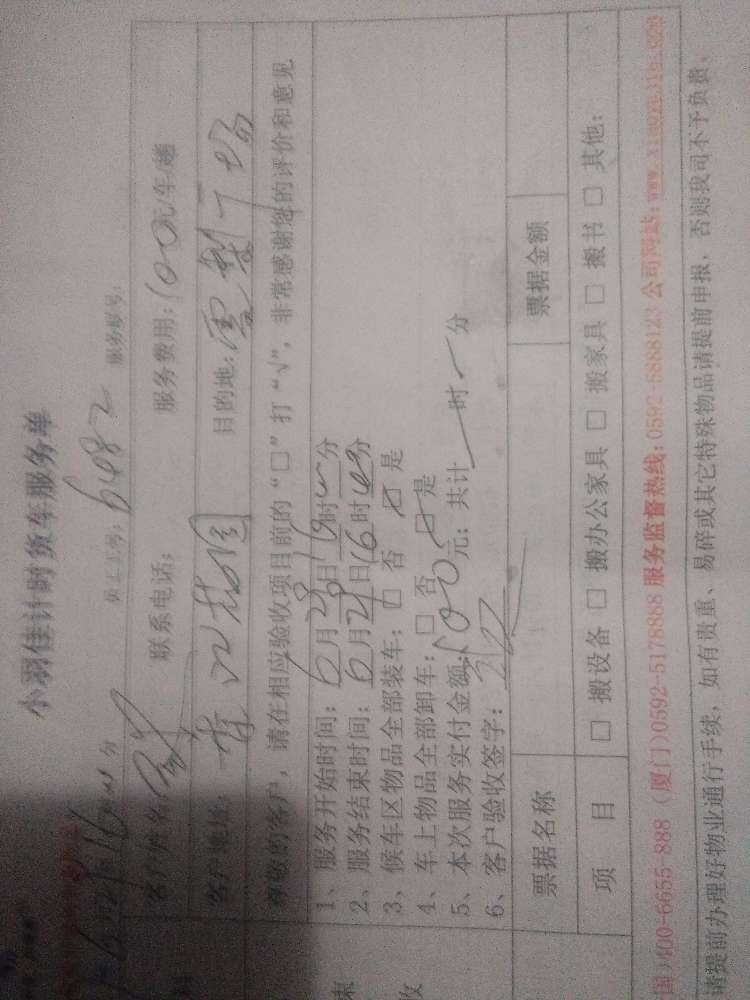 小羽佳计时货车服务单
分 员工工号: 6482 服务账号:
客户姓名 联系电话: 服务费用: 100元/车/趟
客户地址: 目的地:
尊敬的客户,请在相应验收项目前的“□”打“√”,非常感谢您的评价和意见
1、服务开始时间: 6月 日16时 分
2、服务结束时间: 6月 日16时 分
3、候车区物品全部装车: □ 否 ☑ 是
4、车上物品全部卸车: □ 否 ☑ 是
5、本次服务实付金额: 100元; 共计 时 分
6、客户验收签字:
票据名称 票据金额
项 目 □ 搬设备 □ 搬办公家具 □ 搬家具 □ 搬书 □ 其他:
国)400-6655-888 (厦门)0592-5178888 服务监督热线:0592-5888123 公司网站:www.xiaoyujia.com
请提前办理好物业通行手续,如有贵重、易碎或其它特殊物品请提前申报,否则我司不予负责。